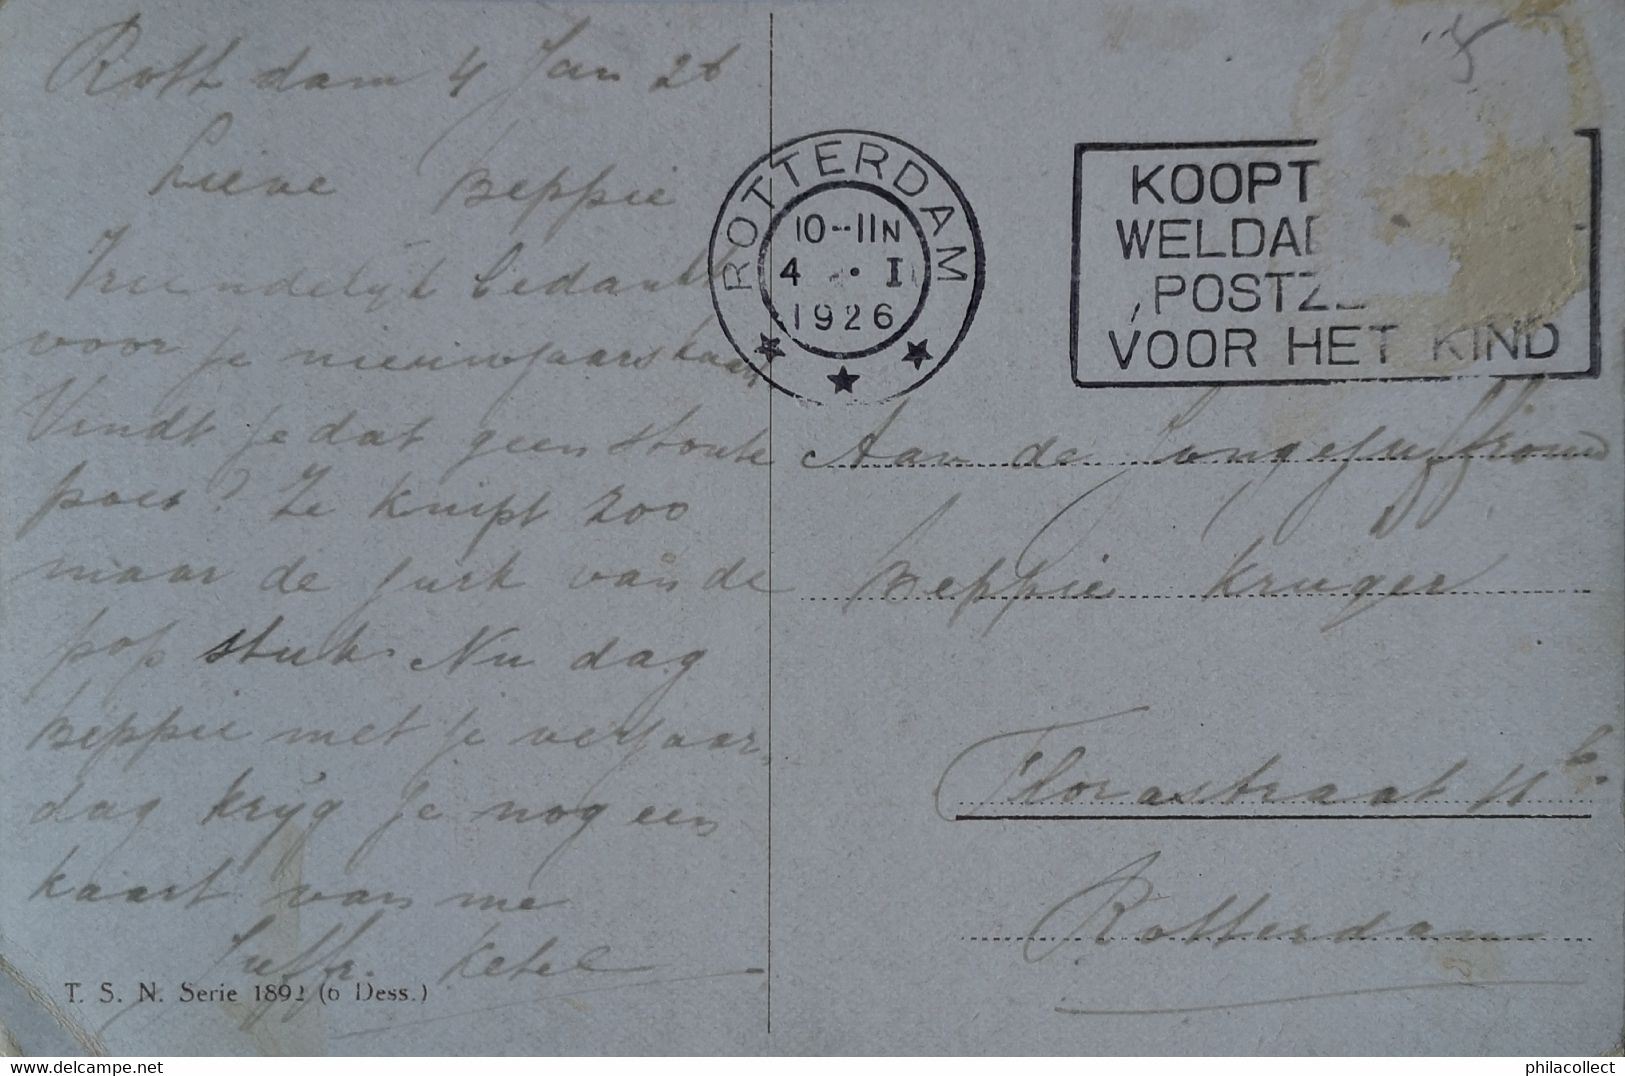 Rott dam 4 Jan 26
Lieve Beppie
Vriendelijk bedankt
voor je nieuwjaarskaart
Vindt je dat geen stoute
poes? Ze knipt zoo
maar de jurk van de
pop stuk. Nu dag
Beppie met je verjaar
dag krijg je nog een
kaart van me
Juffr. Ketel
T. S. N. Serie 1892 (6 Dess.)
ROTTERDAM
10-11N
4 I
1926
KOOPT
WELDA
POSTZ
VOOR HET KIND
Aan de Jongejuffrouw
Beppie Kruger
Florastraat 11b.
Rotterdam
philacollect